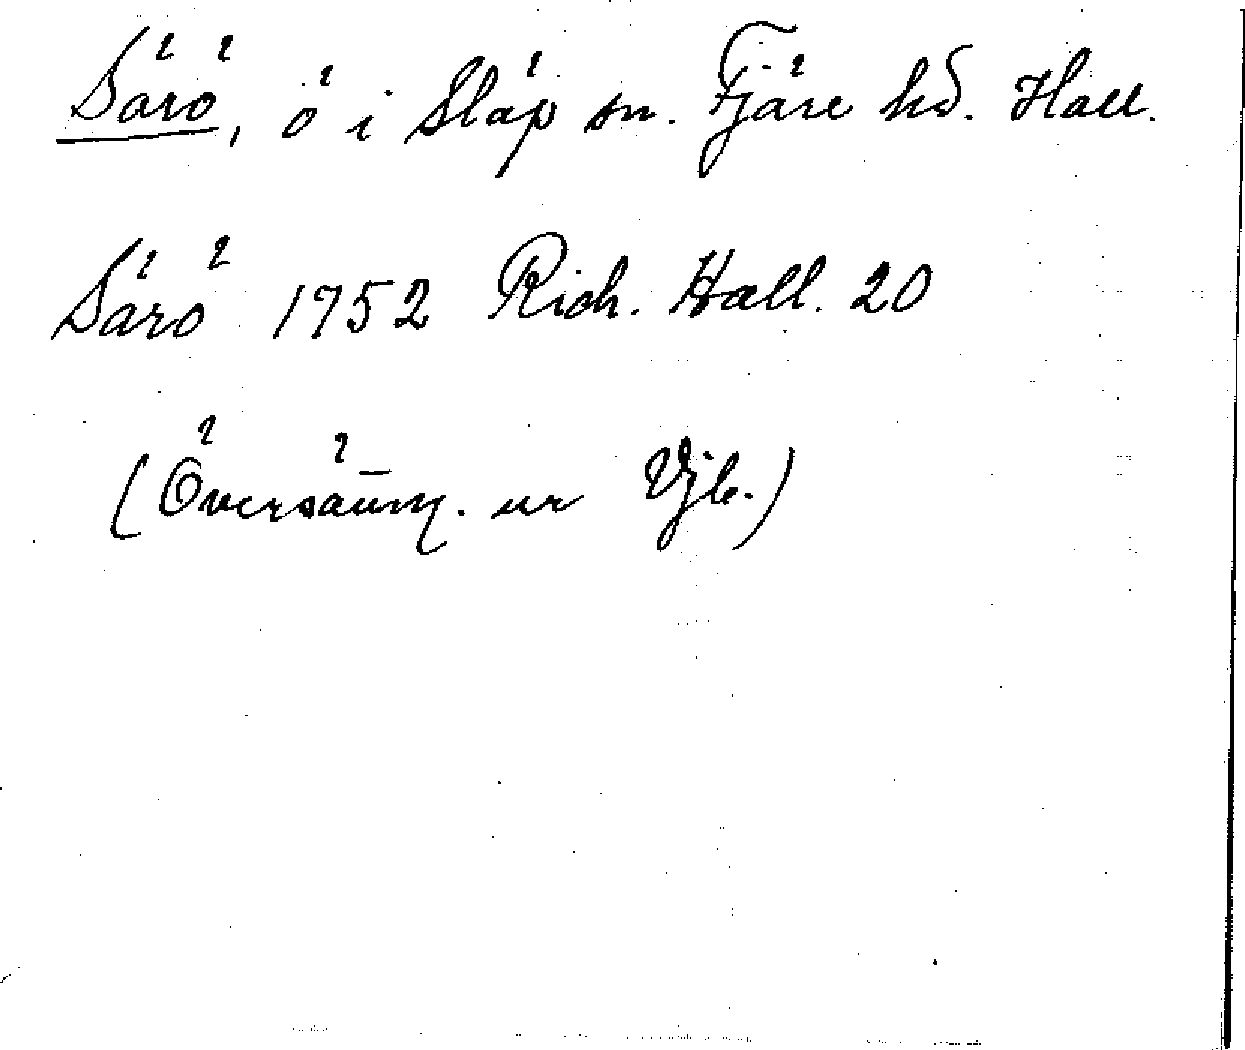 Särö, ö i Släp sn. Fjäre hd. Hall.
Särö 1752 Rich. Hall. 20
(Översäm̄. ur Vjb.)